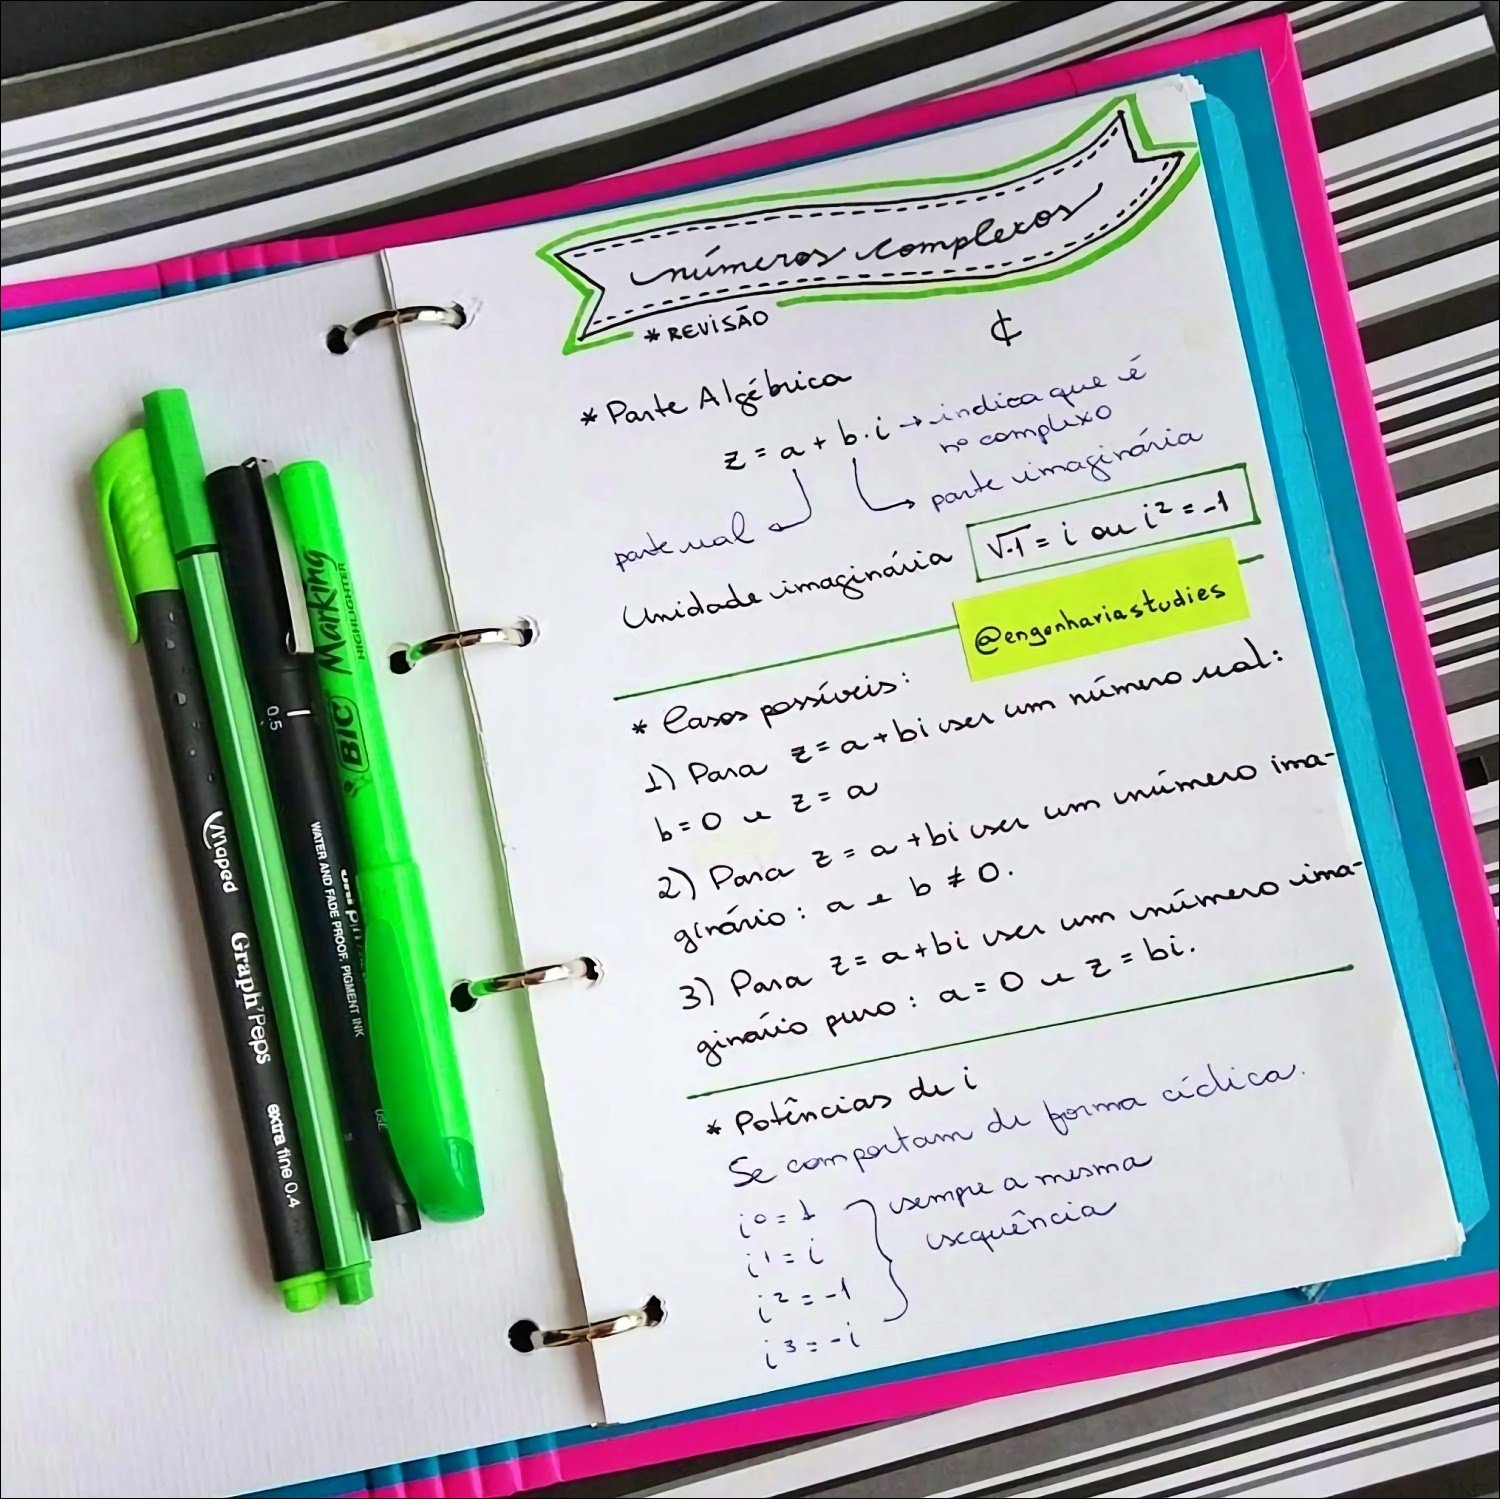 números complexos
* REVISÃO
₵
* Parte Algébrica
z = a + b.i → indica que é
nº complexo
parte imaginária
parte real
Unidade imaginária √-1 = i ou i² = -1
@engenhariastudies
* Casos possíveis:
1) Para z = a + bi ser um número real:
b = 0 e z = a
2) Para z = a + bi ser um número ima-
ginário: a e b ≠ 0.
3) Para z = a + bi ser um número ima-
ginário puro: a = 0 e z = bi.
* Potências de i
Se comportam de forma cíclica.
i⁰ = 1
i¹ = i
i² = -1
i³ = -i
sempre a mesma
sequência
Maped Graph'Peps extra fine 0.4
0.5
WATER AND FADE PROOF. PIGMENT INK
uni PIN
USE
BIC Marking
HIGHLIGHTER